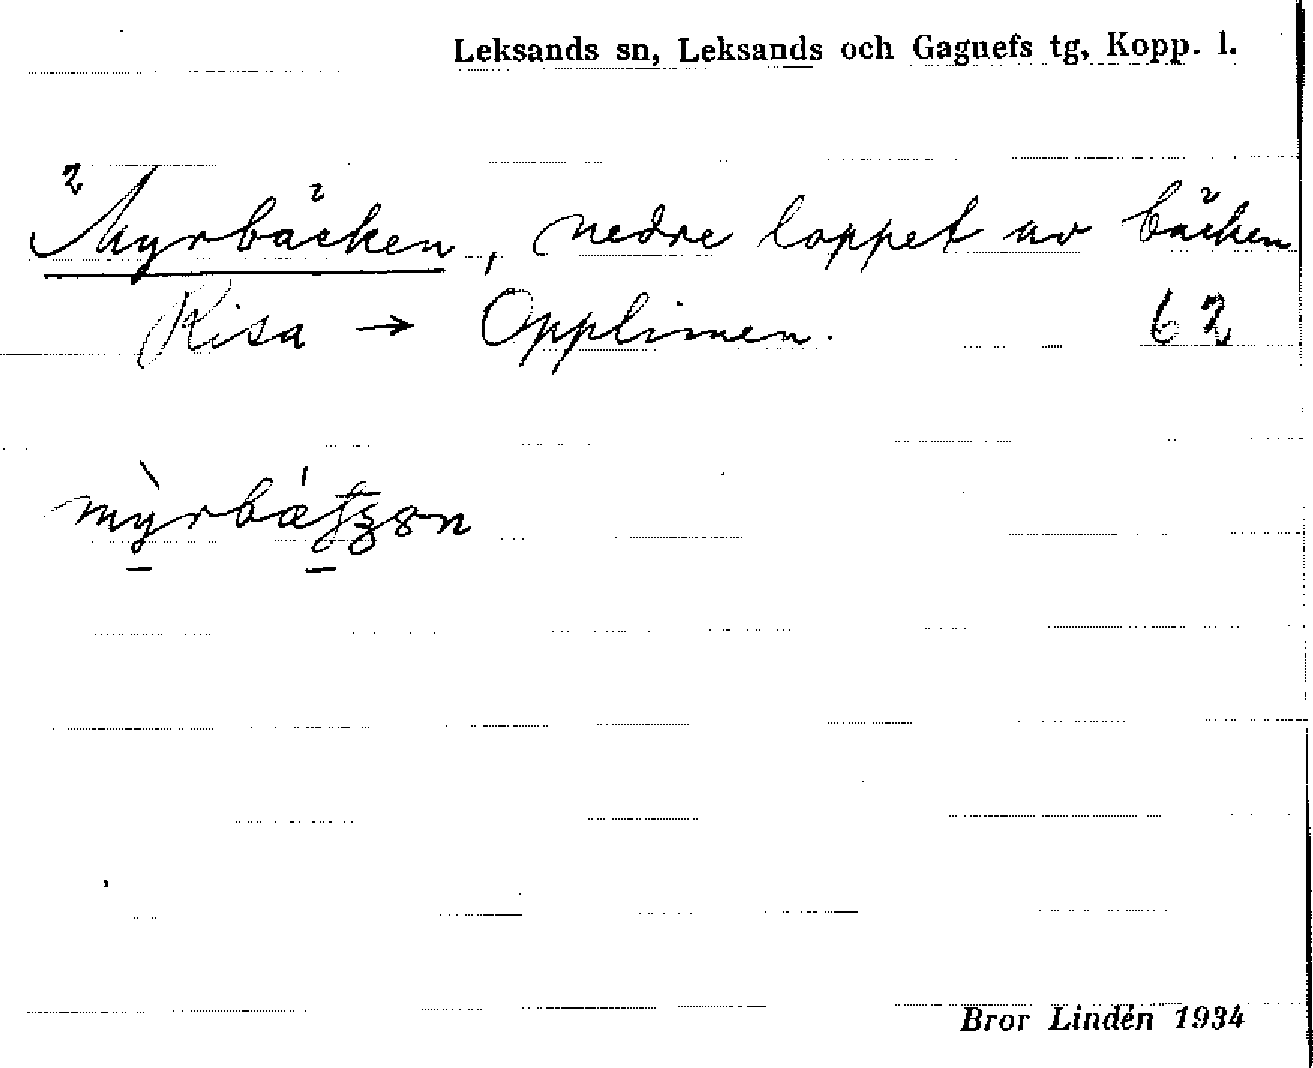 Leksands sn, Leksands och Gagnefs tg, Kopp. l.
2 Myrbäcken, nedre loppet av bäcken
Risa → Opplimen. 62
Bror Lindén 1934